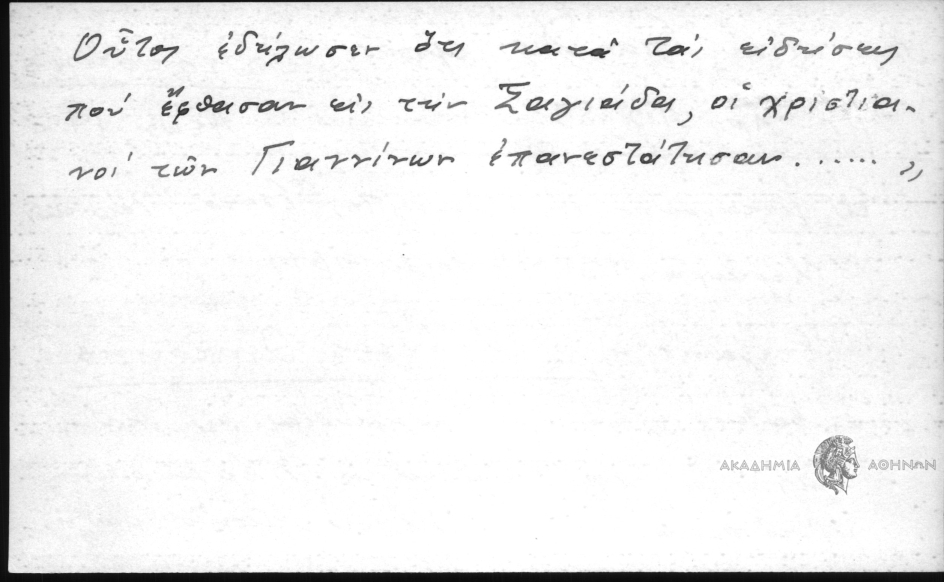 Οὗτος ἐδήλωσεν ὅτι κατά τάς εἰδήσεις
πού ἔφθασαν εἰς τήν Σαγιάδα, οἱ χριστια-
νοί τῶν Γιαννίνων ἐπανεστάτησαν......,,
ΑΚΑΔΗΜΙΑ ΑΘΗΝΩΝ